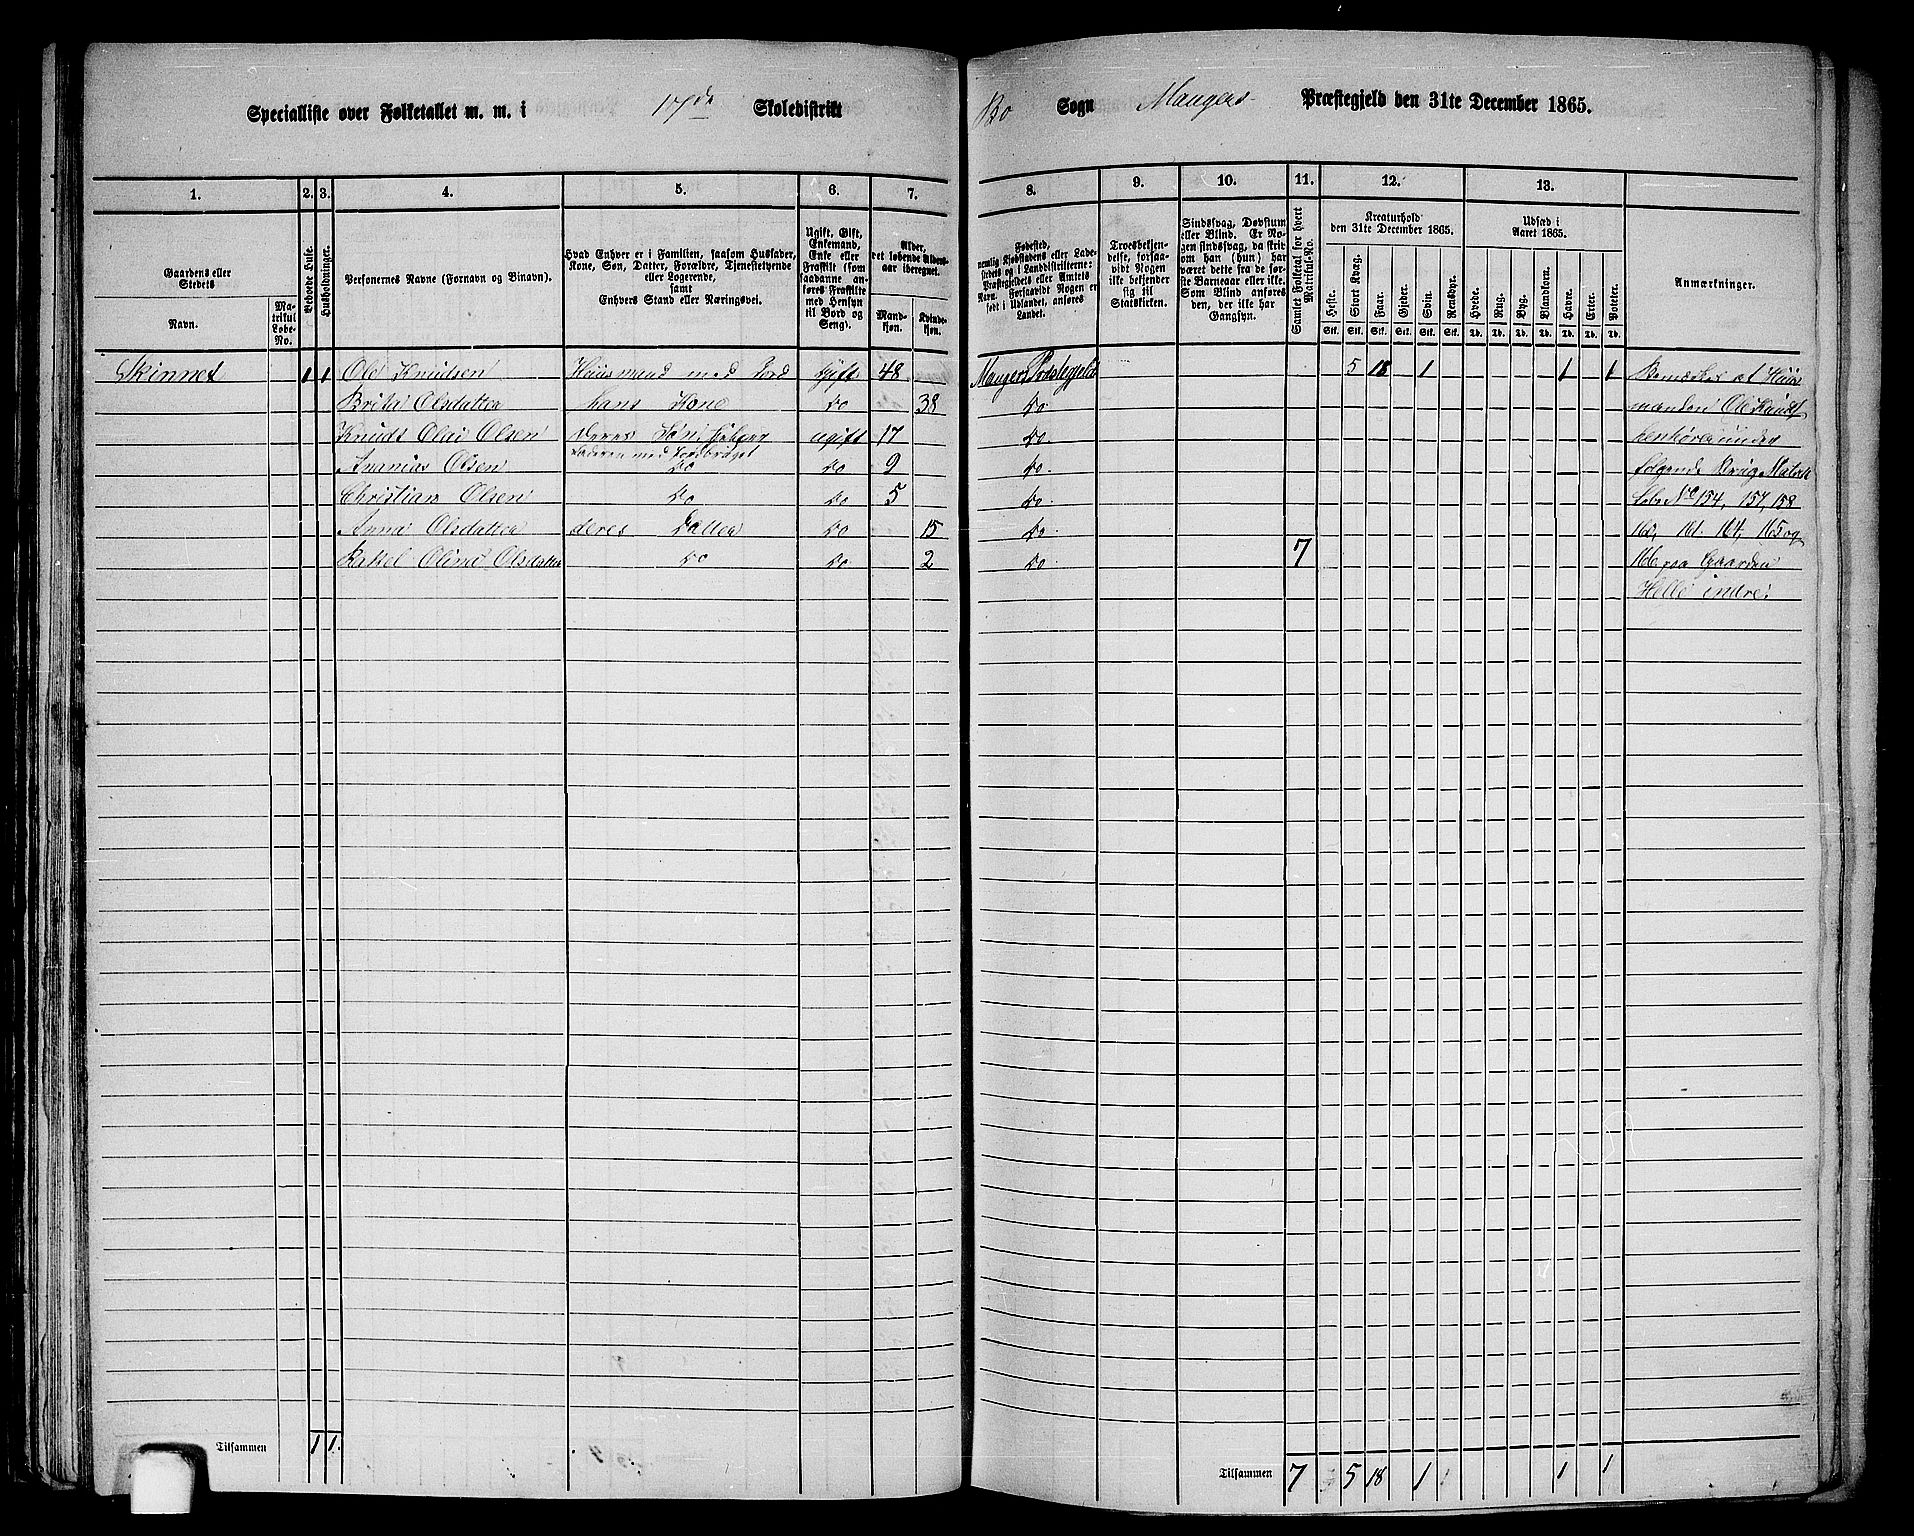 Specialliste over Folketallet m. m. i 17de Skoledistrikt
Bø Sogn Mangers Præstegjeld den 31te December 1865.
1. 2. 3. 4. 5. 6. 7.
Gaardens eller Stedets
Navn.
Matrikul Løbe-No.
Beboede Huse.
Husholdninger.
Personernes Navne (Fornavn og Binavn).
Hvad Enhver er i Familien, saasom Husfader, Kone, Søn, Datter, Forældre, Tjenestetyende eller Logerende,
samt
Enhvers Stand eller Næringsvei.
Ugift, Gift, Enkemand, Enke eller Fraskilt (som saadanne anføres Fraskilte med Hensyn til Bord og Seng).
Alder, det løbende Aldersaar iberegnet.
Mandkøn.
Kvindekøn.
8. 9. 10. 11. 12. 13.
Fødested,
nemlig Kjøbstadens eller Ladestedets og i Landdistrikterne: Præstegjeldets eller Amtets Navn. Forsaavidt Nogen er født i Udlandet, anføres Landet.
Troesbekjendelse, forsaavidt Nogen ikke bekjender sig til Statskirken.
Sindssvag, Døvstum eller Blind. Er Nogen sindssvag, da skrives om han (hun) har været dette fra de første Barneaar eller ikke. Som Blind anføres den, der ikke har Gangsyn.
Samlet Folketal for hvert Matrikul-No.
Kreaturhold
den 31te December 1865.
Heste. Stort Kvæg. Faar. Gjeder. Svin. Rensdyr.
Stk. Stk. Stk. Stk. Stk. Stk.
Udsæd i
Aaret 1865.
Hvede. Rug. Byg. Blandkorn. Havre. Erter. Poteter.
Td. Td. Td. Td. Td. Td. Td.
Anmærkninger.
Skinnet 1 1 Ole Knudsen Huusmand med Jord Gift 48 Mangers Præstegjeld 5 18 1 1 1
Brita Olsdatter hans Kone do 38 do
Knudt Olai Olsen deres Søn, hjelper ugift 17 do
Faderen med Jordbruget
Ananias Olsen do do 9 do
Christian Olsen do do 5 do
Anna Olsdatter deres Datter do 15 do
Rakel Olina Olsdatter do do 2 do 7
Bemærkes at Huus
manden Ole Knudt
henhører under
følgende Brug, Matrik
Løbe No 154, 157, 158
164, 165 og
166 paa Gaarden
Helle indre.
Tilsammen 1 1
Tilsammen 7 5 18 1 1 1